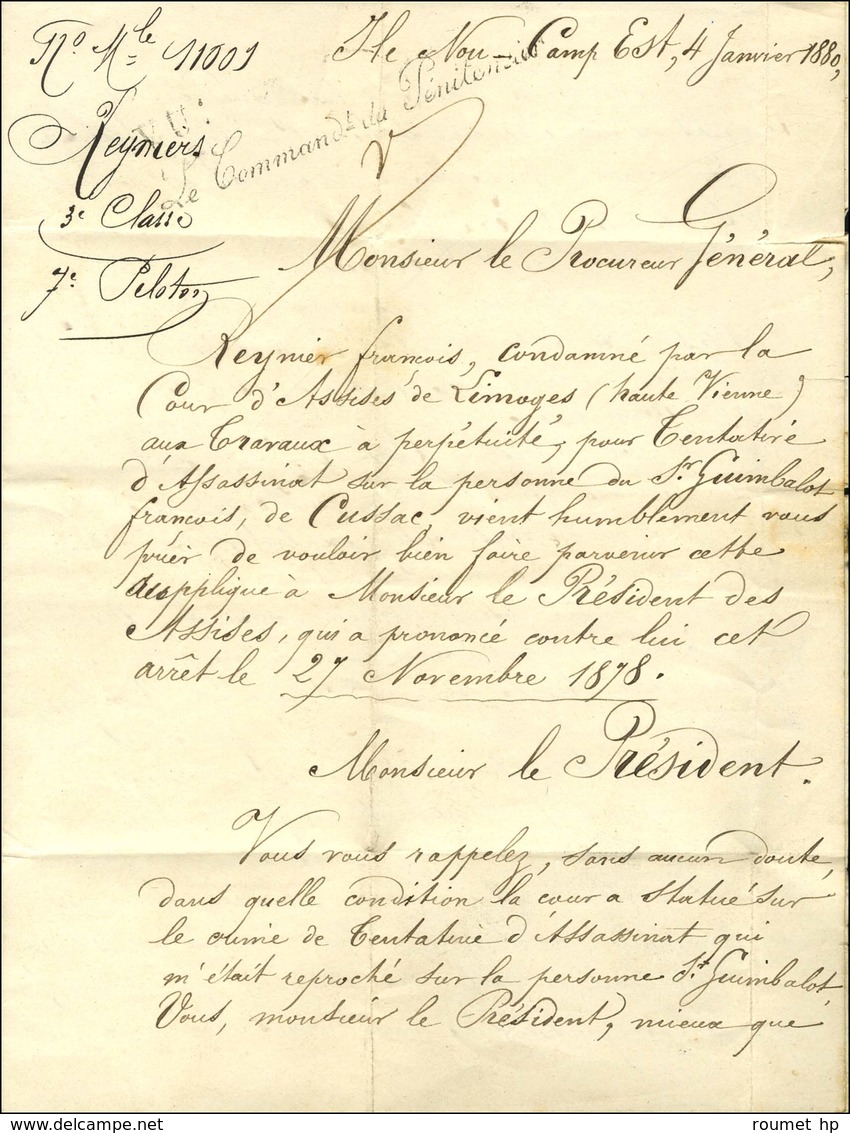 No Mle 11001
Ile Nou - Camp Est, 4 Janvier 1880,
Vu:
Le Commandt du Pénitencier
Reymers
3e Classe
7e Peloton
Monsieur le Procureur Général,
Reynier françois, condamné par la
Cour d'Assises de Limoges (haute Vienne)
aux Travaux à perpétuité, pour Tentative
d'Assassinat sur la personne du Sr Guimbalot
françois, de Cussac, vient humblement vous
prier de vouloir bien faire parvenir cette
supplique à Monsieur le Président des
Assises, qui a prononcé contre lui cet
arrêt le 27 Novembre 1878.
Monsieur le Président.
Vous vous rappelez, sans aucun doute,
dans quelle condition la cour a statué sur
le crime de Tentative d'Assassinat qui
m'était reproché sur la personne Sr Guimbalot,
Vous, monsieur le Président, mieux que
roumet hp